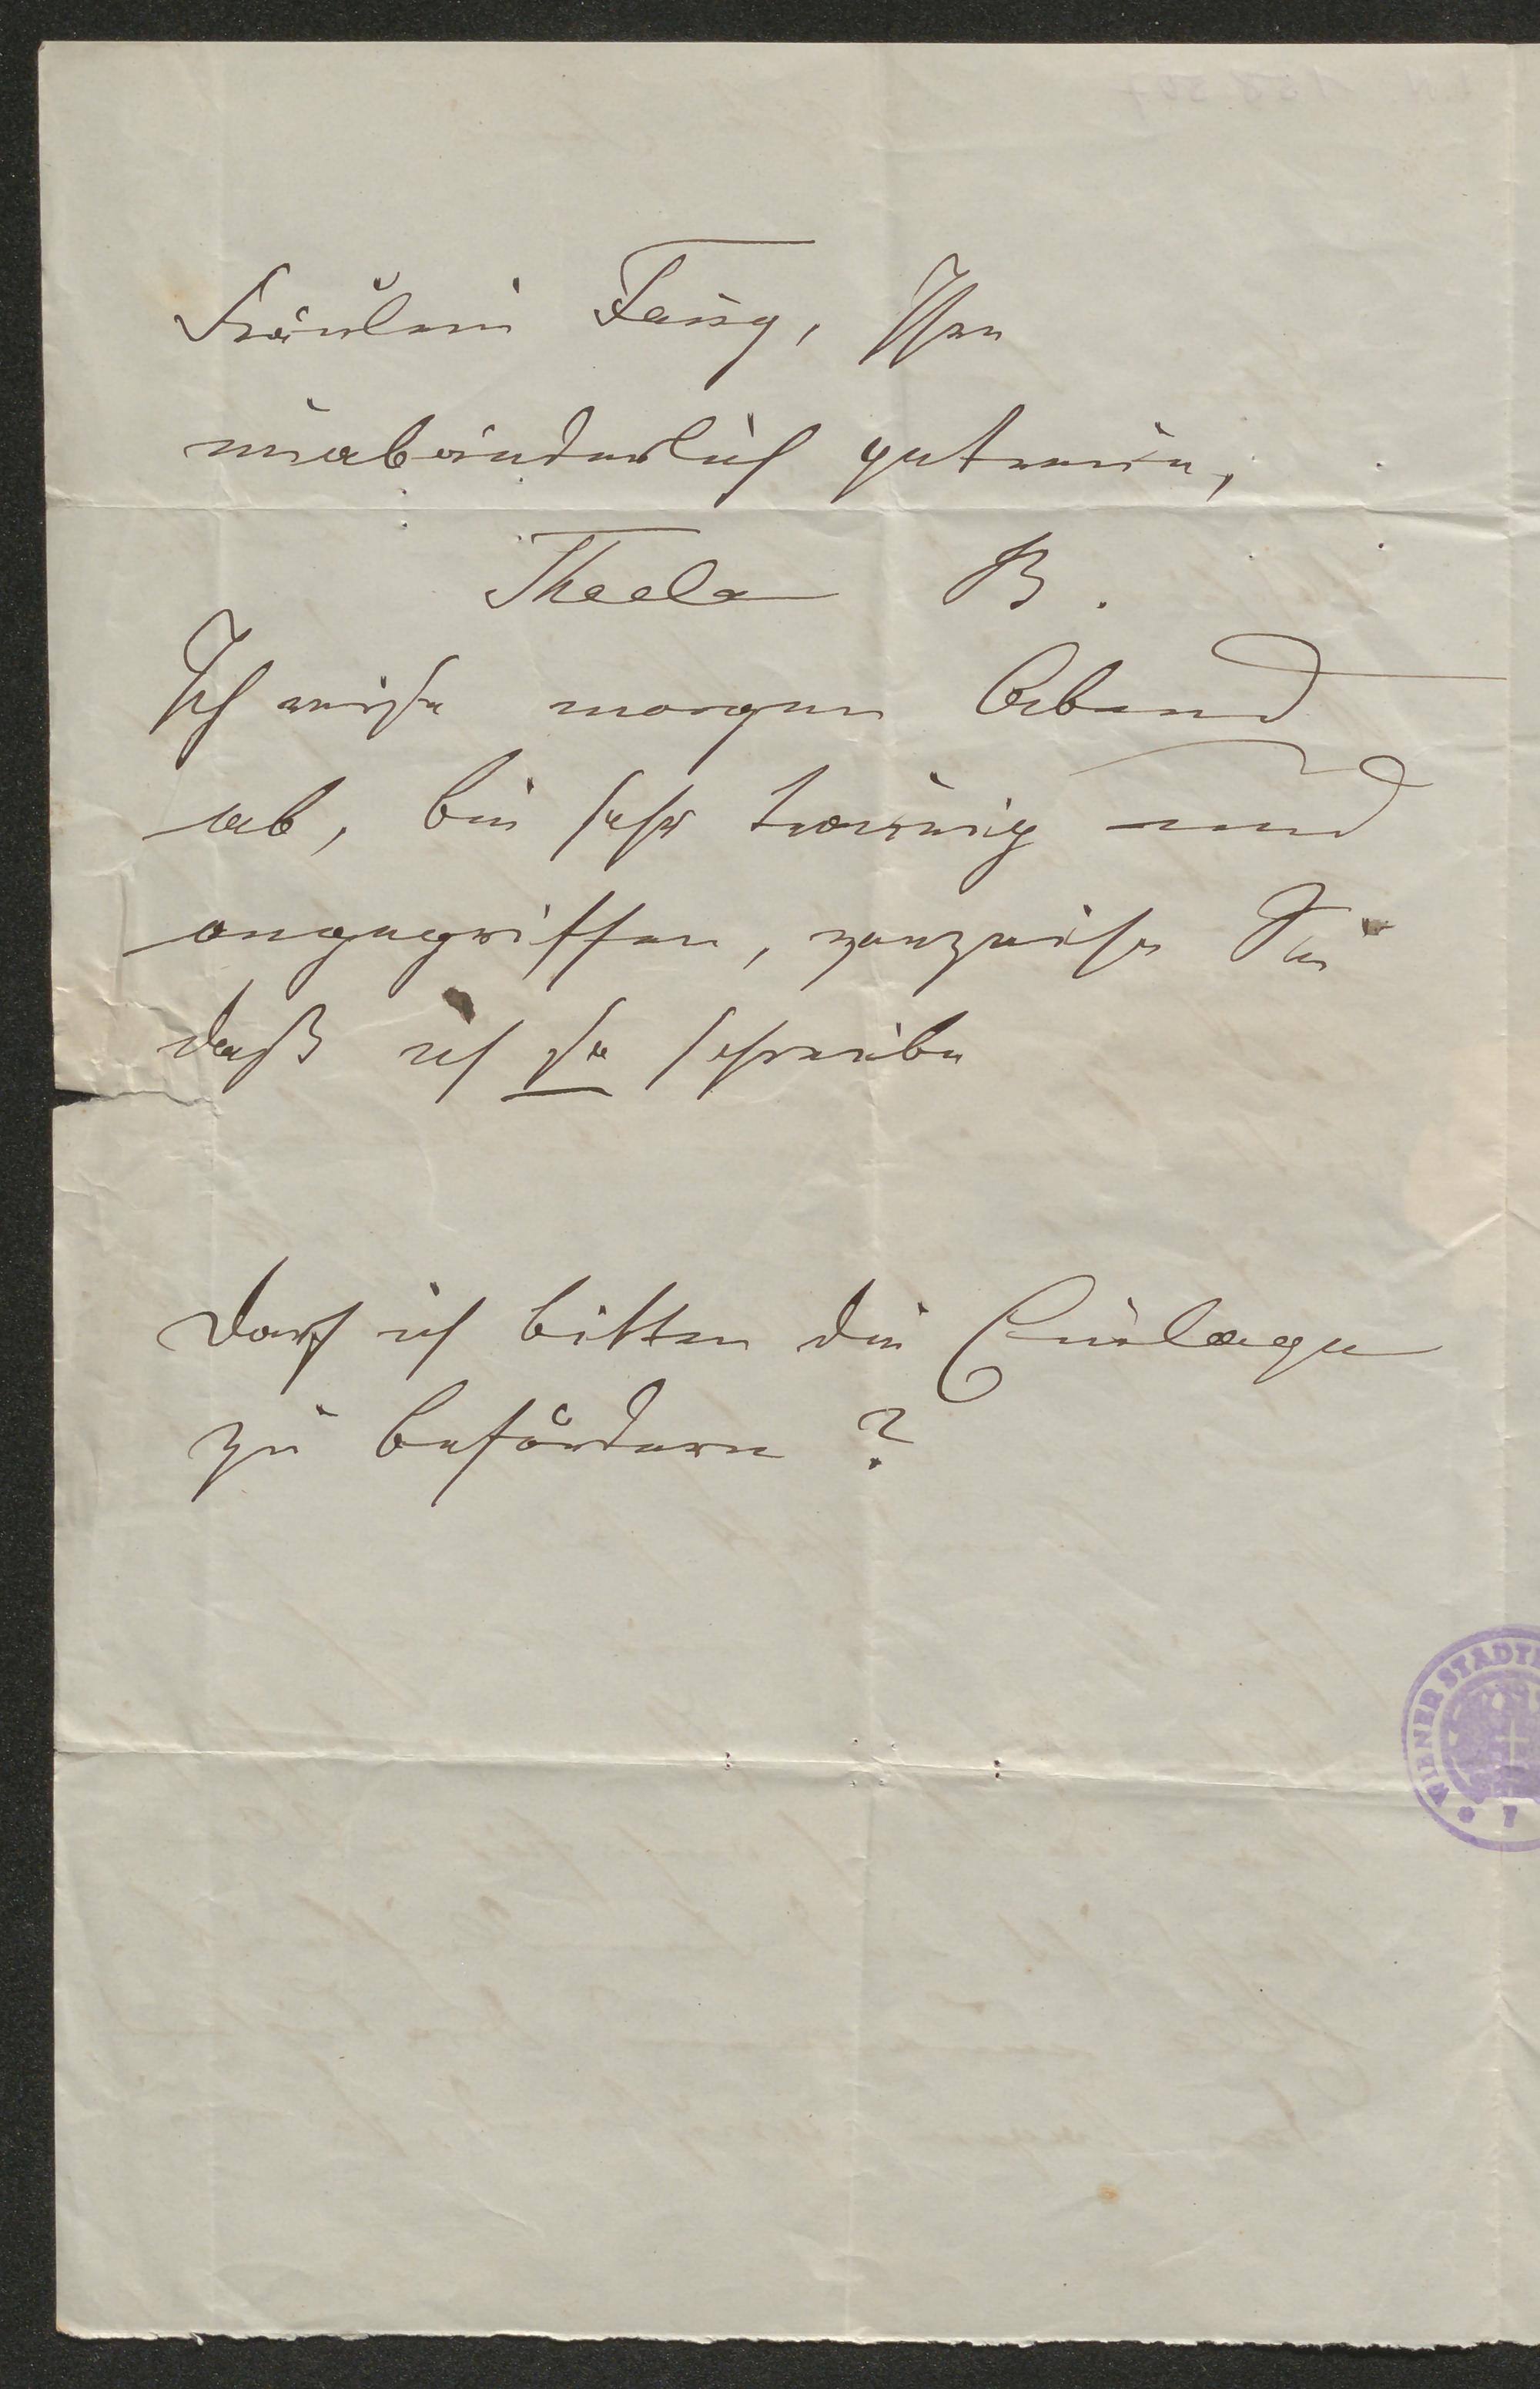 Fräulein Fanny, Ihre
unabänderlich getreue,
Thecla B.
Ich reise morgen Abend
ab, bin sehr traurig und
angegriffen, verzeihe Sie
daß ich so schreibe
Darf ich bitten die Einlage
zu befördern?
WIENER STADT